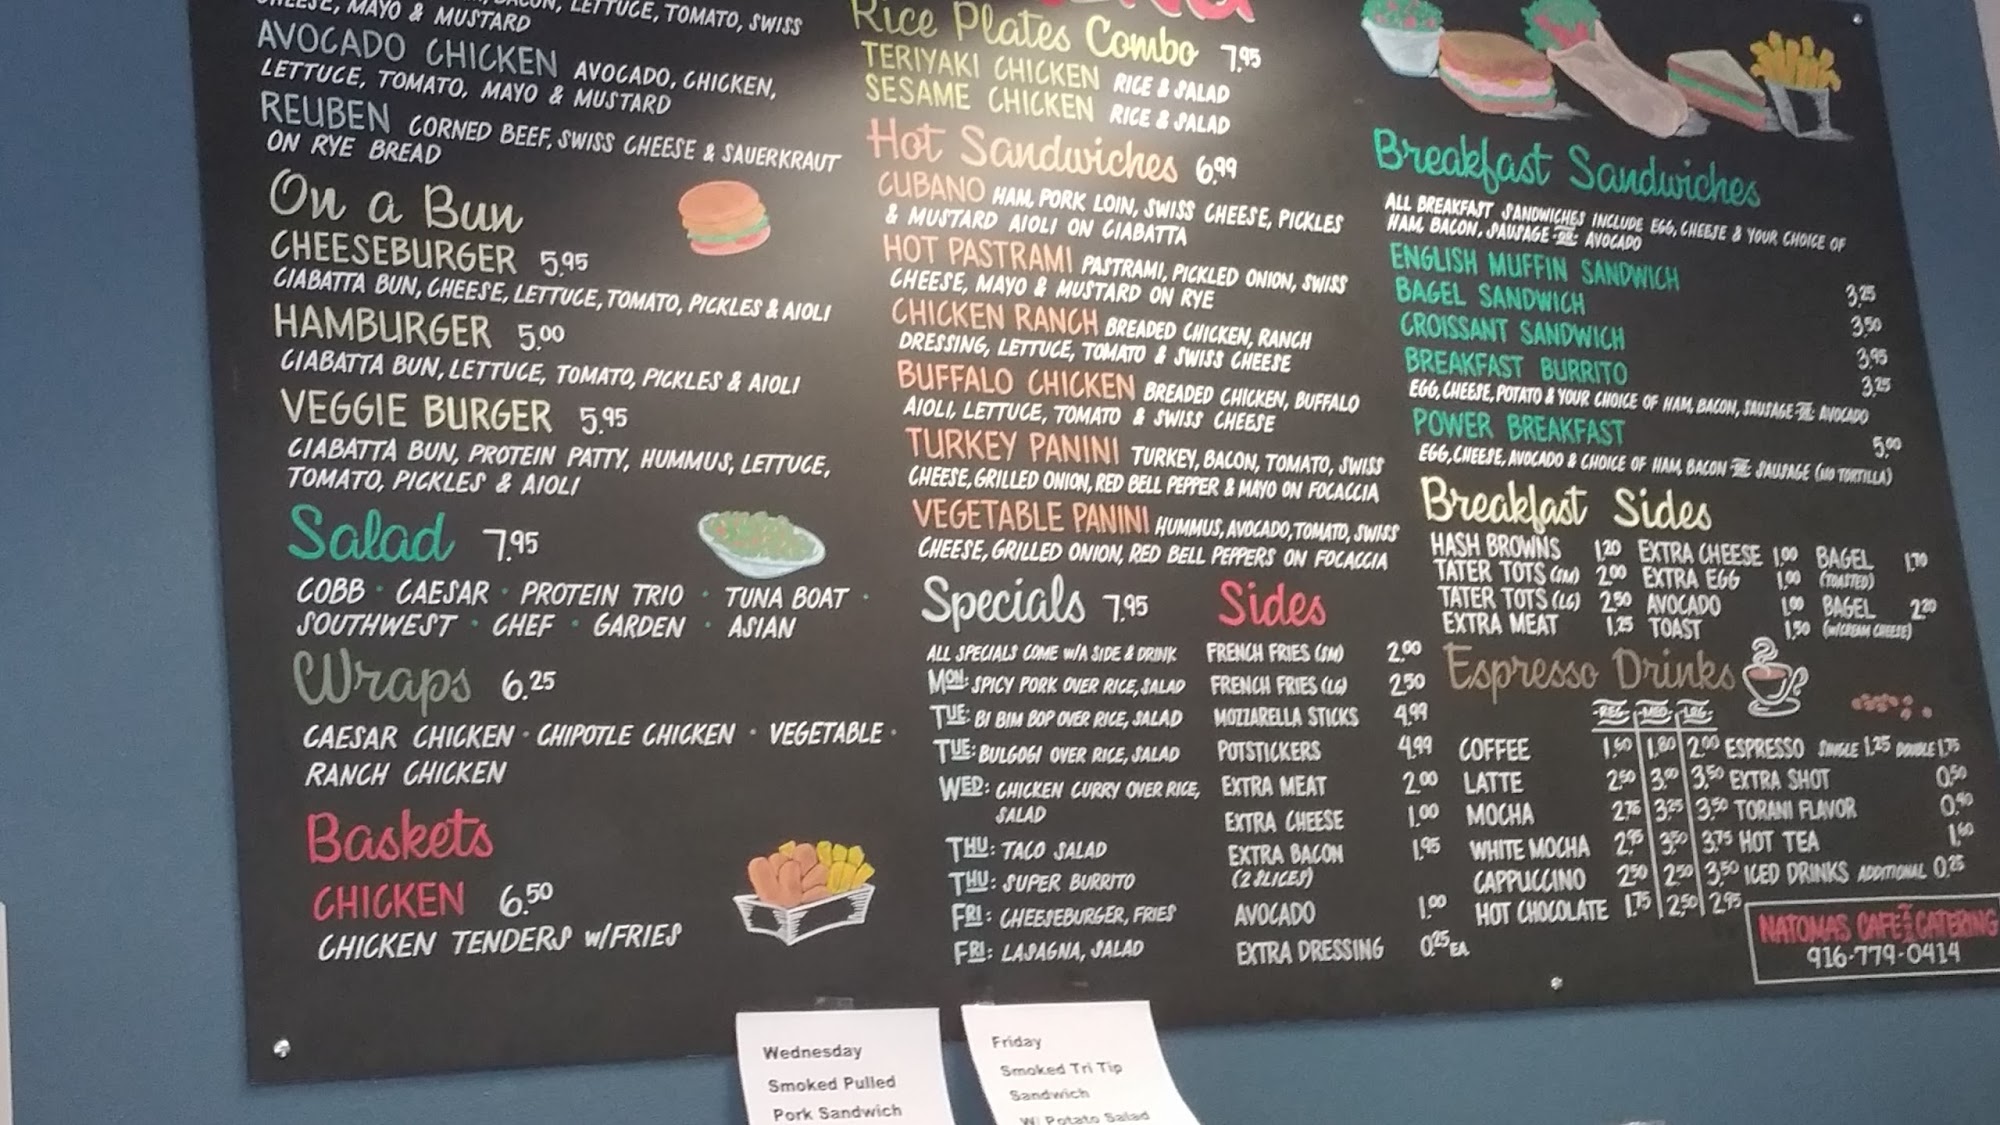 CHEESE, MAYO & MUSTARD
BACON, LETTUCE, TOMATO, SWISS
AVOCADO CHICKEN AVOCADO, CHICKEN,
LETTUCE, TOMATO, MAYO & MUSTARD
REUBEN CORNED BEEF, SWISS CHEESE & SAUERKRAUT
ON RYE BREAD
On a Bun
CHEESEBURGER 5.95
CIABATTA BUN, CHEESE, LETTUCE, TOMATO, PICKLES & AIOLI
HAMBURGER 5.00
CIABATTA BUN, LETTUCE, TOMATO, PICKLES & AIOLI
VEGGIE BURGER 5.95
CIABATTA BUN, PROTEIN PATTY, HUMMUS, LETTUCE,
TOMATO, PICKLES & AIOLI
Salad 7.95
COBB · CAESAR · PROTEIN TRIO · TUNA BOAT ·
SOUTHWEST · CHEF · GARDEN · ASIAN
Wraps 6.25
CAESAR CHICKEN · CHIPOTLE CHICKEN · VEGETABLE ·
RANCH CHICKEN
Baskets
CHICKEN 6.50
CHICKEN TENDERS W/FRIES
Rice Plates Combo 7.95
TERIYAKI CHICKEN RICE & SALAD
SESAME CHICKEN RICE & SALAD
Hot Sandwiches 6.99
CUBANO HAM, PORK LOIN, SWISS CHEESE, PICKLES
& MUSTARD AIOLI ON CIABATTA
HOT PASTRAMI PASTRAMI, PICKLED ONION, SWISS
CHEESE, MAYO & MUSTARD ON RYE
CHICKEN RANCH BREADED CHICKEN, RANCH
DRESSING, LETTUCE, TOMATO & SWISS CHEESE
BUFFALO CHICKEN BREADED CHICKEN, BUFFALO
AIOLI, LETTUCE, TOMATO & SWISS CHEESE
TURKEY PANINI TURKEY, BACON, TOMATO, SWISS
CHEESE, GRILLED ONION, RED BELL PEPPER & MAYO ON FOCACCIA
VEGETABLE PANINI HUMMUS, AVOCADO, TOMATO, SWISS
CHEESE, GRILLED ONION, RED BELL PEPPERS ON FOCACCIA
Specials 7.95
ALL SPECIALS COME W/A SIDE & DRINK
MON: SPICY PORK OVER RICE, SALAD
TUE: BI BIM BOP OVER RICE, SALAD
TUE: BULGOGI OVER RICE, SALAD
WED: CHICKEN CURRY OVER RICE,
SALAD
THU: TACO SALAD
THU: SUPER BURRITO
FRI: CHEESEBURGER, FRIES
FRI: LASAGNA, SALAD
Sides
FRENCH FRIES (SM) 2.00
FRENCH FRIES (LG) 2.50
MOZZARELLA STICKS 4.99
POTSTICKERS 4.99
EXTRA MEAT 2.00
EXTRA CHEESE 1.00
EXTRA BACON 1.95
(2 SLICES)
AVOCADO 1.00
EXTRA DRESSING 0.25 EA
Breakfast Sandwiches
ALL BREAKFAST SANDWICHES INCLUDE EGG, CHEESE & YOUR CHOICE OF
HAM, BACON, SAUSAGE -OR- AVOCADO
ENGLISH MUFFIN SANDWICH 3.25
BAGEL SANDWICH 3.50
CROISSANT SANDWICH 3.95
BREAKFAST BURRITO 3.25
EGG, CHEESE, POTATO & YOUR CHOICE OF HAM, BACON, SAUSAGE -OR- AVOCADO
POWER BREAKFAST 5.00
EGG, CHEESE, AVOCADO & CHOICE OF HAM, BACON -OR- SAUSAGE (NO TORTILLA)
Breakfast Sides
HASH BROWNS 1.20 EXTRA CHEESE 1.00 BAGEL 1.70
TATER TOTS (SM) 2.00 EXTRA EGG 1.00 (TOASTED)
TATER TOTS (LG) 2.50 AVOCADO 1.00 BAGEL 2.20
EXTRA MEAT 1.25 TOAST 1.50 (W/CREAM CHEESE)
Espresso Drinks
-REG- -MED- -LRG-
COFFEE 1.60 1.80 2.00 ESPRESSO SINGLE 1.25 DOUBLE 1.75
LATTE 2.50 3.00 3.50 EXTRA SHOT 0.50
MOCHA 2.75 3.25 3.50 TORANI FLAVOR 0.40
WHITE MOCHA 2.95 3.50 3.75 HOT TEA 1.60
CAPPUCCINO 2.50 2.50 3.50 ICED DRINKS ADDITIONAL 0.25
HOT CHOCOLATE 1.75 2.50 2.95
NATOMAS CAFE CATERING
916-779-0414
Wednesday
Smoked Pulled
Pork Sandwich
Friday
Smoked Tri Tip
Sandwich
W/ Potato Salad